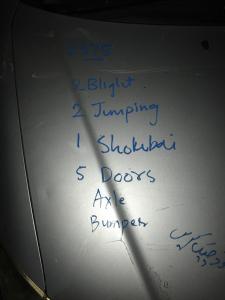 2 Blight.
2 Jumping
1 Shokubai
5 Doors
Axle
Bumper